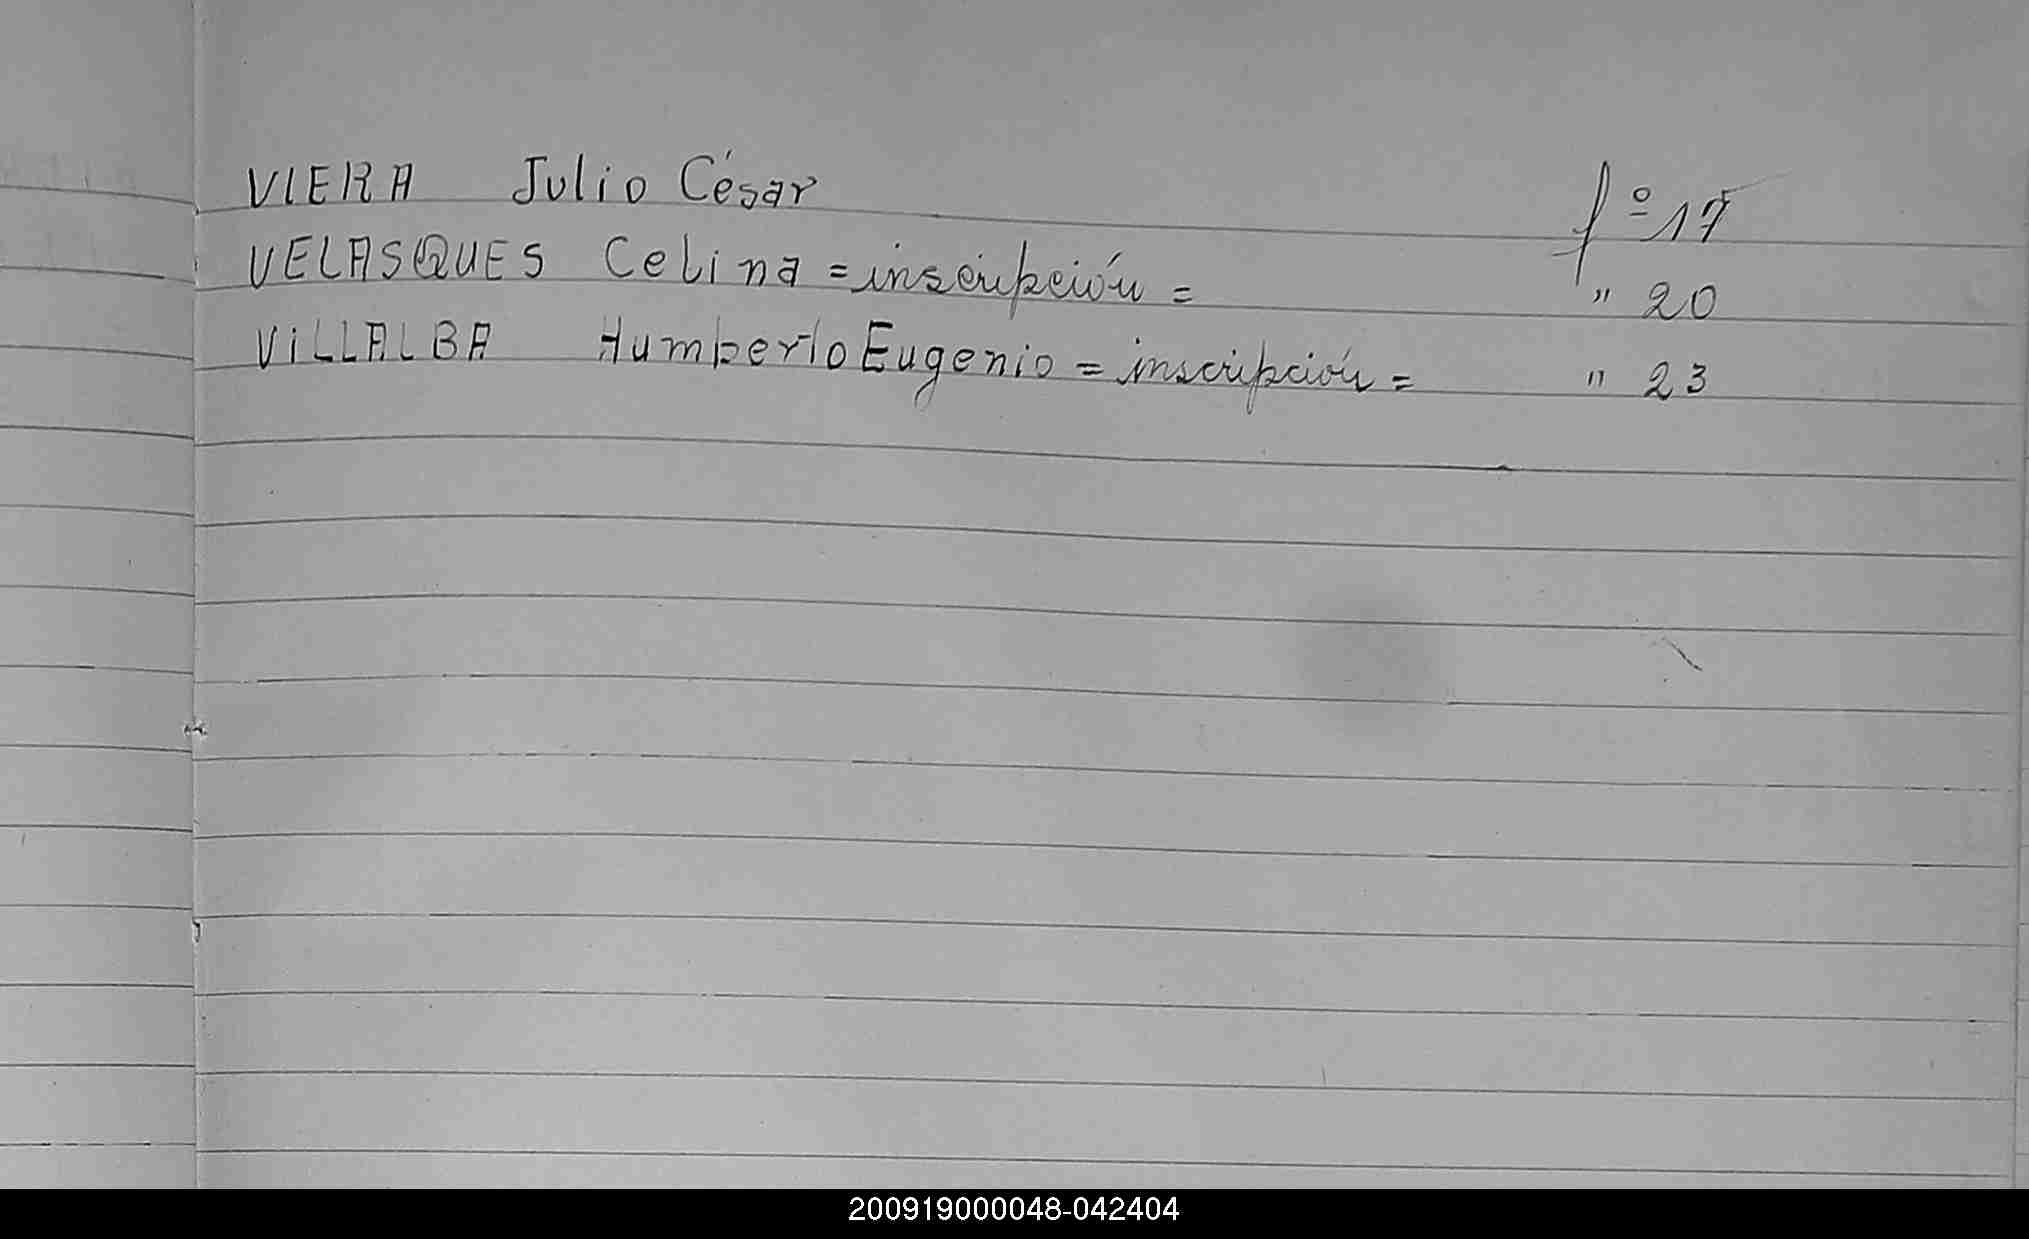 VIERA Julio César fº 17
VELASQUES Celina = inscripción = " 20
VILLALBA Humberto Eugenio = inscripción = " 23
200919000048-042404